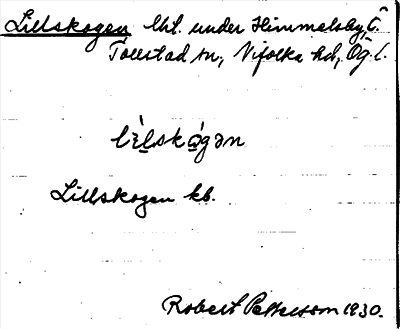 Lillskogen lht. under Himmelsby, C.
Tollstad sn, Vifolka hd, Ög. l.
lìlskó̱gən
Lillskogen kb.
Robert Pettersson 1930.